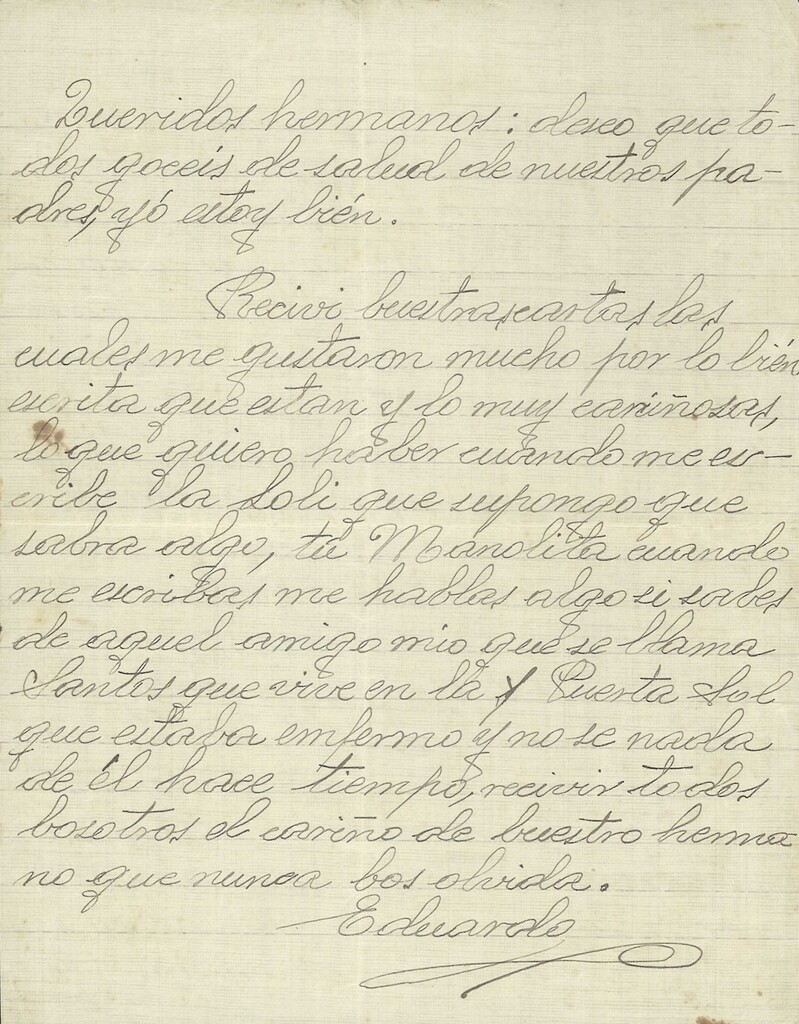 Queridos hermanos: deseo que to-
dos goceis de salud de nuestros pa-
dres, yó estoy bién.
Recivi buestras cartas las
cuales me gustaron mucho por lo bién
escrita que estan y lo muy cariñosas,
lo que quiero haber cuando me es-
cribe la Loli que supongo que
sabra algo, tu Manolita cuando
me escribas me hablas algo si sabes
de aquel amigo mio que se llama
Santos que vive en la Puerta Sol
que estaba emfermo y no se nada
de él hace tiempo, recivir todos
bosotros el cariño de buestro herma
no que nunca bos olvida.
Eduardo